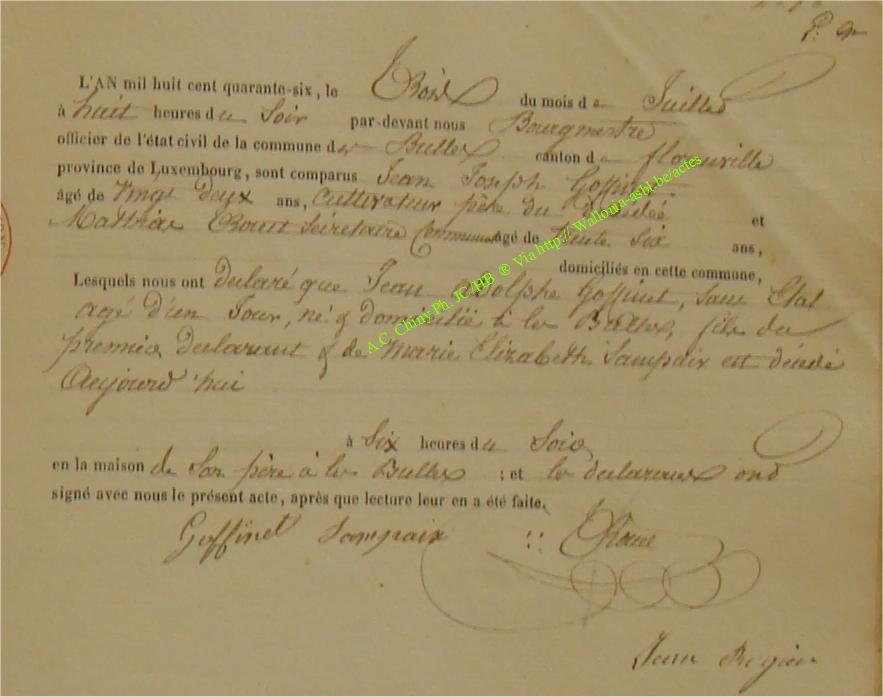 L'AN mil huit cent quarante-six, le Trois du mois de Juillet
à huit heures du Soir par-devant nous Bourgmestre
officier de l'état civil de la commune de Bulles canton de florenville
province de Luxembourg, sont comparus Jean Joseph Goffinet
âgé de Vingt deux ans, Cultivateur père du décédé et
Mathias Sécretaire Communal âgé de Trente Six ans,
domiciliés en cette commune,
Lesquels nous ont declaré que Jean Adolphe Goffinet, sans Etat
agé d'un Jour, né & domicilié à les Bulles, fils du
premier declarant & de Marie Elizabeth Sampaix est décédé
Aujourd'hui
à Six heures du Soir
en la maison de Son père à les Bulles ; et les declarans ont
signé avec nous le présent acte, après que lecture leur en a été faite.
Goffinet Sampaix
Jean
A.C. Chiny Ph. JC HB ® Via http://Wallonia-asbl.be/actes